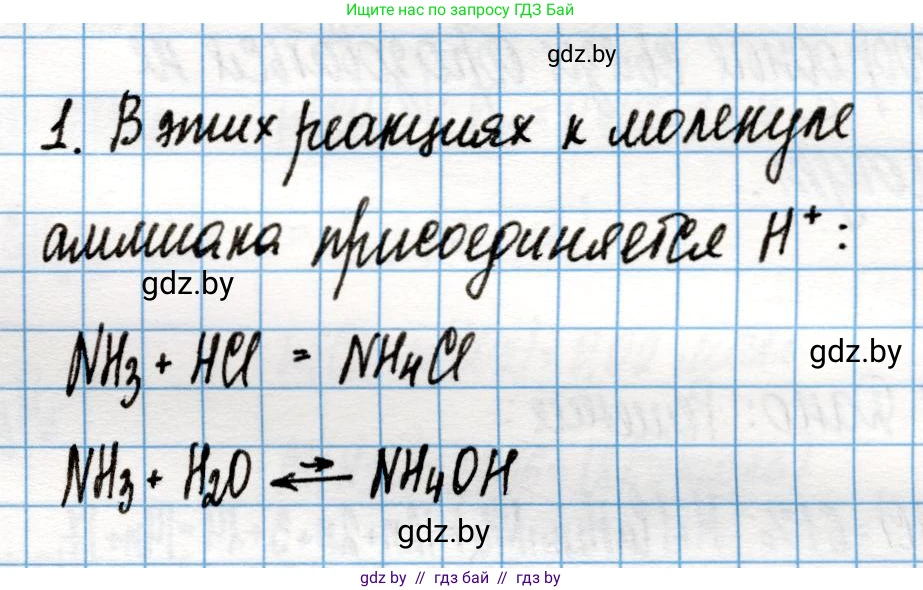 Ищите нас по запросу ГДЗ Бай
gdz.by
1. В этих реакциях к молекуле
аммиака присоединяется H⁺:
gdz.by
NH₃ + HCl = NH₄Cl
gdz.by
NH₃ + H₂O ⇄ NH₄OH
gdz.by
gdz by // гдз бай // гдз by